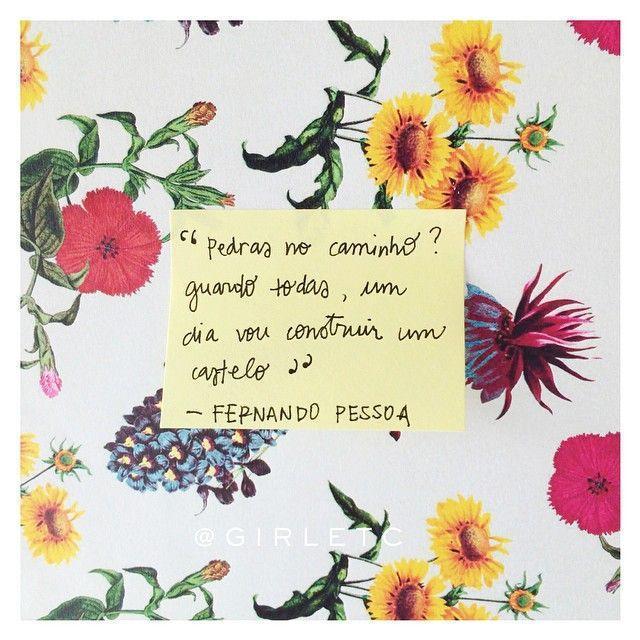 “ Pedras no caminho?
guardo todas, um
dia vou construir um
castelo ”
— FERNANDO PESSOA
@GIRLETC